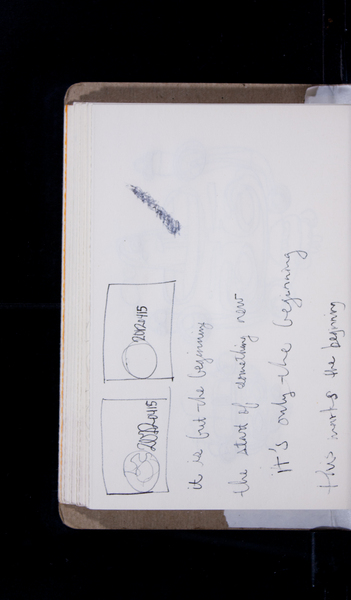 20120415
20120415
it is but the beginning
the start of something new
it's only the beginning
this marks the beginning